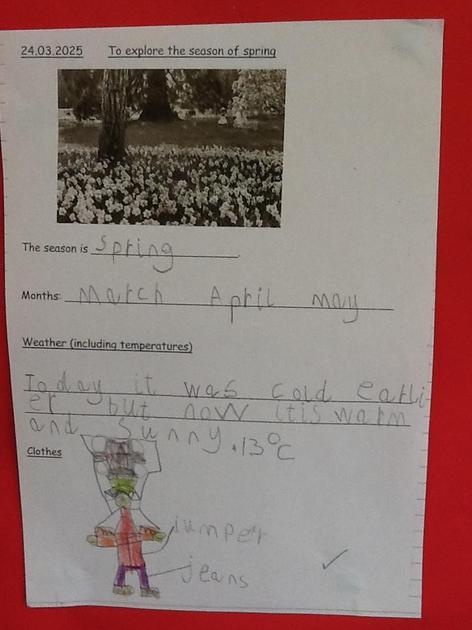 24.03.2025 To explore the season of spring
The season is spring
Months: March April may
Weather (including temperatures)
Today it was cold earli
er but now itis warm
and sunny. 13°C
Clothes
jumper
jeans